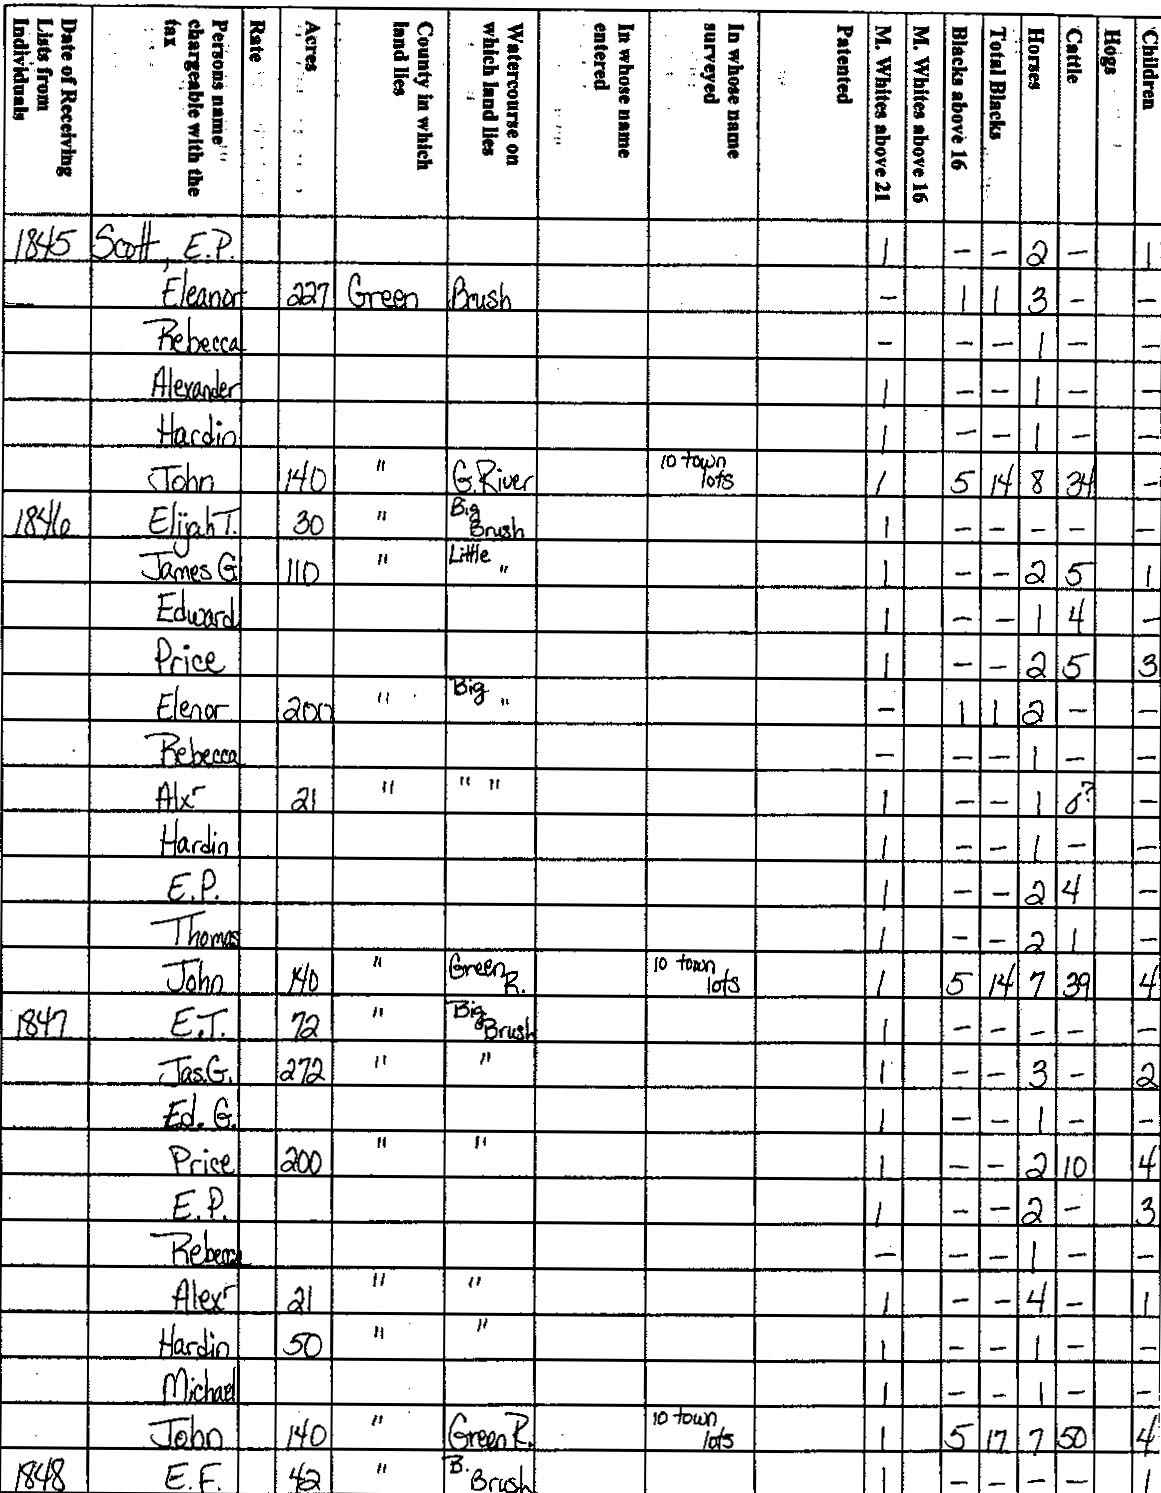 Date of Receiving Lists from Individuals | Persons name chargeable with the tax | Rate | Acres | County in which land lies | Watercourse on which land lies | In whose name entered | In whose name surveyed | Patented | M. Whites above 21 | M. Whites above 16 | Blacks above 16 | Total Blacks | Horses | Cattle | Hogs | Children
1845 Scott, E.P. 1 – – 2 – 1
Eleanor 227 Green Brush – 1 1 3 – –
Rebecca – – – 1 – –
Alexander 1 – – 1 – –
Hardin 1 – – 1 – –
John 140 " G. River 10 town lots 1 5 14 8 34 –
1846 Elijah T. 30 " Big Brush 1 – – – – –
James G. 110 " Little " 1 – – 2 5 1
Edward 1 – – 1 4 –
Price 1 – – 2 5 3
Elenor 200 " Big " – 1 1 2 – –
Rebecca – – – 1 – –
Alxr 21 " " " 1 – – 1 6? –
Hardin 1 – – 1 – –
E.P. 1 – – 2 4 –
Thomas 1 – – 2 1 –
John 140 " Green R. 10 town lots 1 5 14 7 39 4
1847 E.T. 72 " Big Brush 1 – – – – –
Jas. G. 272 " " 1 – – 3 – 2
Ed. G. 1 – – 1 – –
Price 200 " " 1 – – 2 10 4
E.P. 1 – – 2 – 3
Rebecca – – – 1 – –
Alexr 21 " " 1 – – 4 – 1
Hardin 50 " " 1 – – 1 – –
Michael 1 – – 1 – –
John 140 " Green R. 10 town lots 1 5 17 7 50 4
1848 E.F. 42 " B. Brush 1 – – – – 1